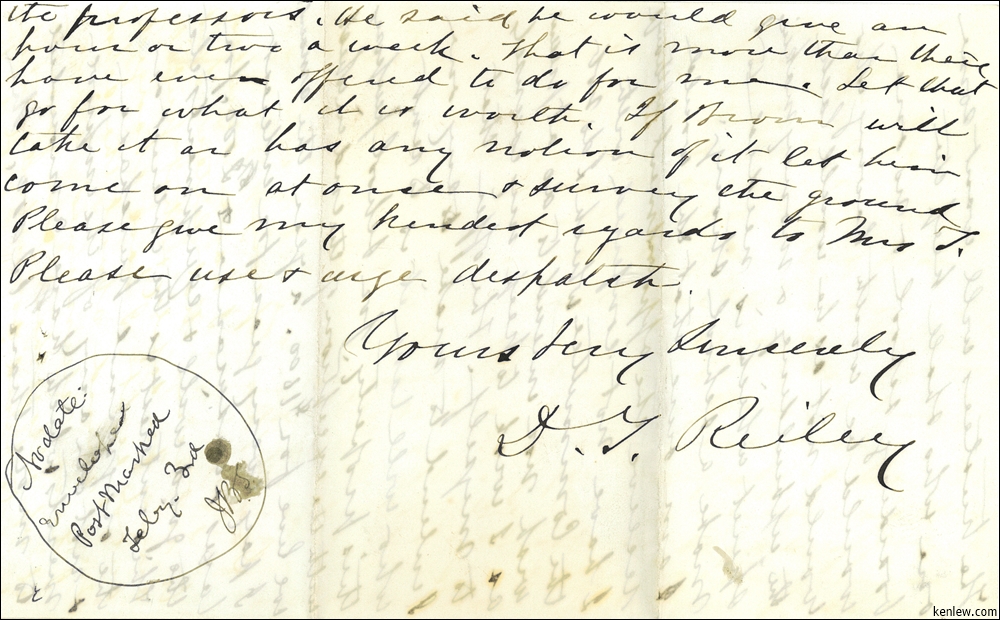 the professors. He said he would give an
hour or two a week. That is more than they
have even offered to do for me. Let that
go for what it is worth. If Brown will
take it or has any notion of it let him
come on at once & survey the ground
Please give my kindest regards to Mrs T.
Please use & urge despatch.
Yours very Sincerely
D. T. Reiley
No date.
Envelope
Post Marked
Feby. 3rd
JBT
kenlew.com